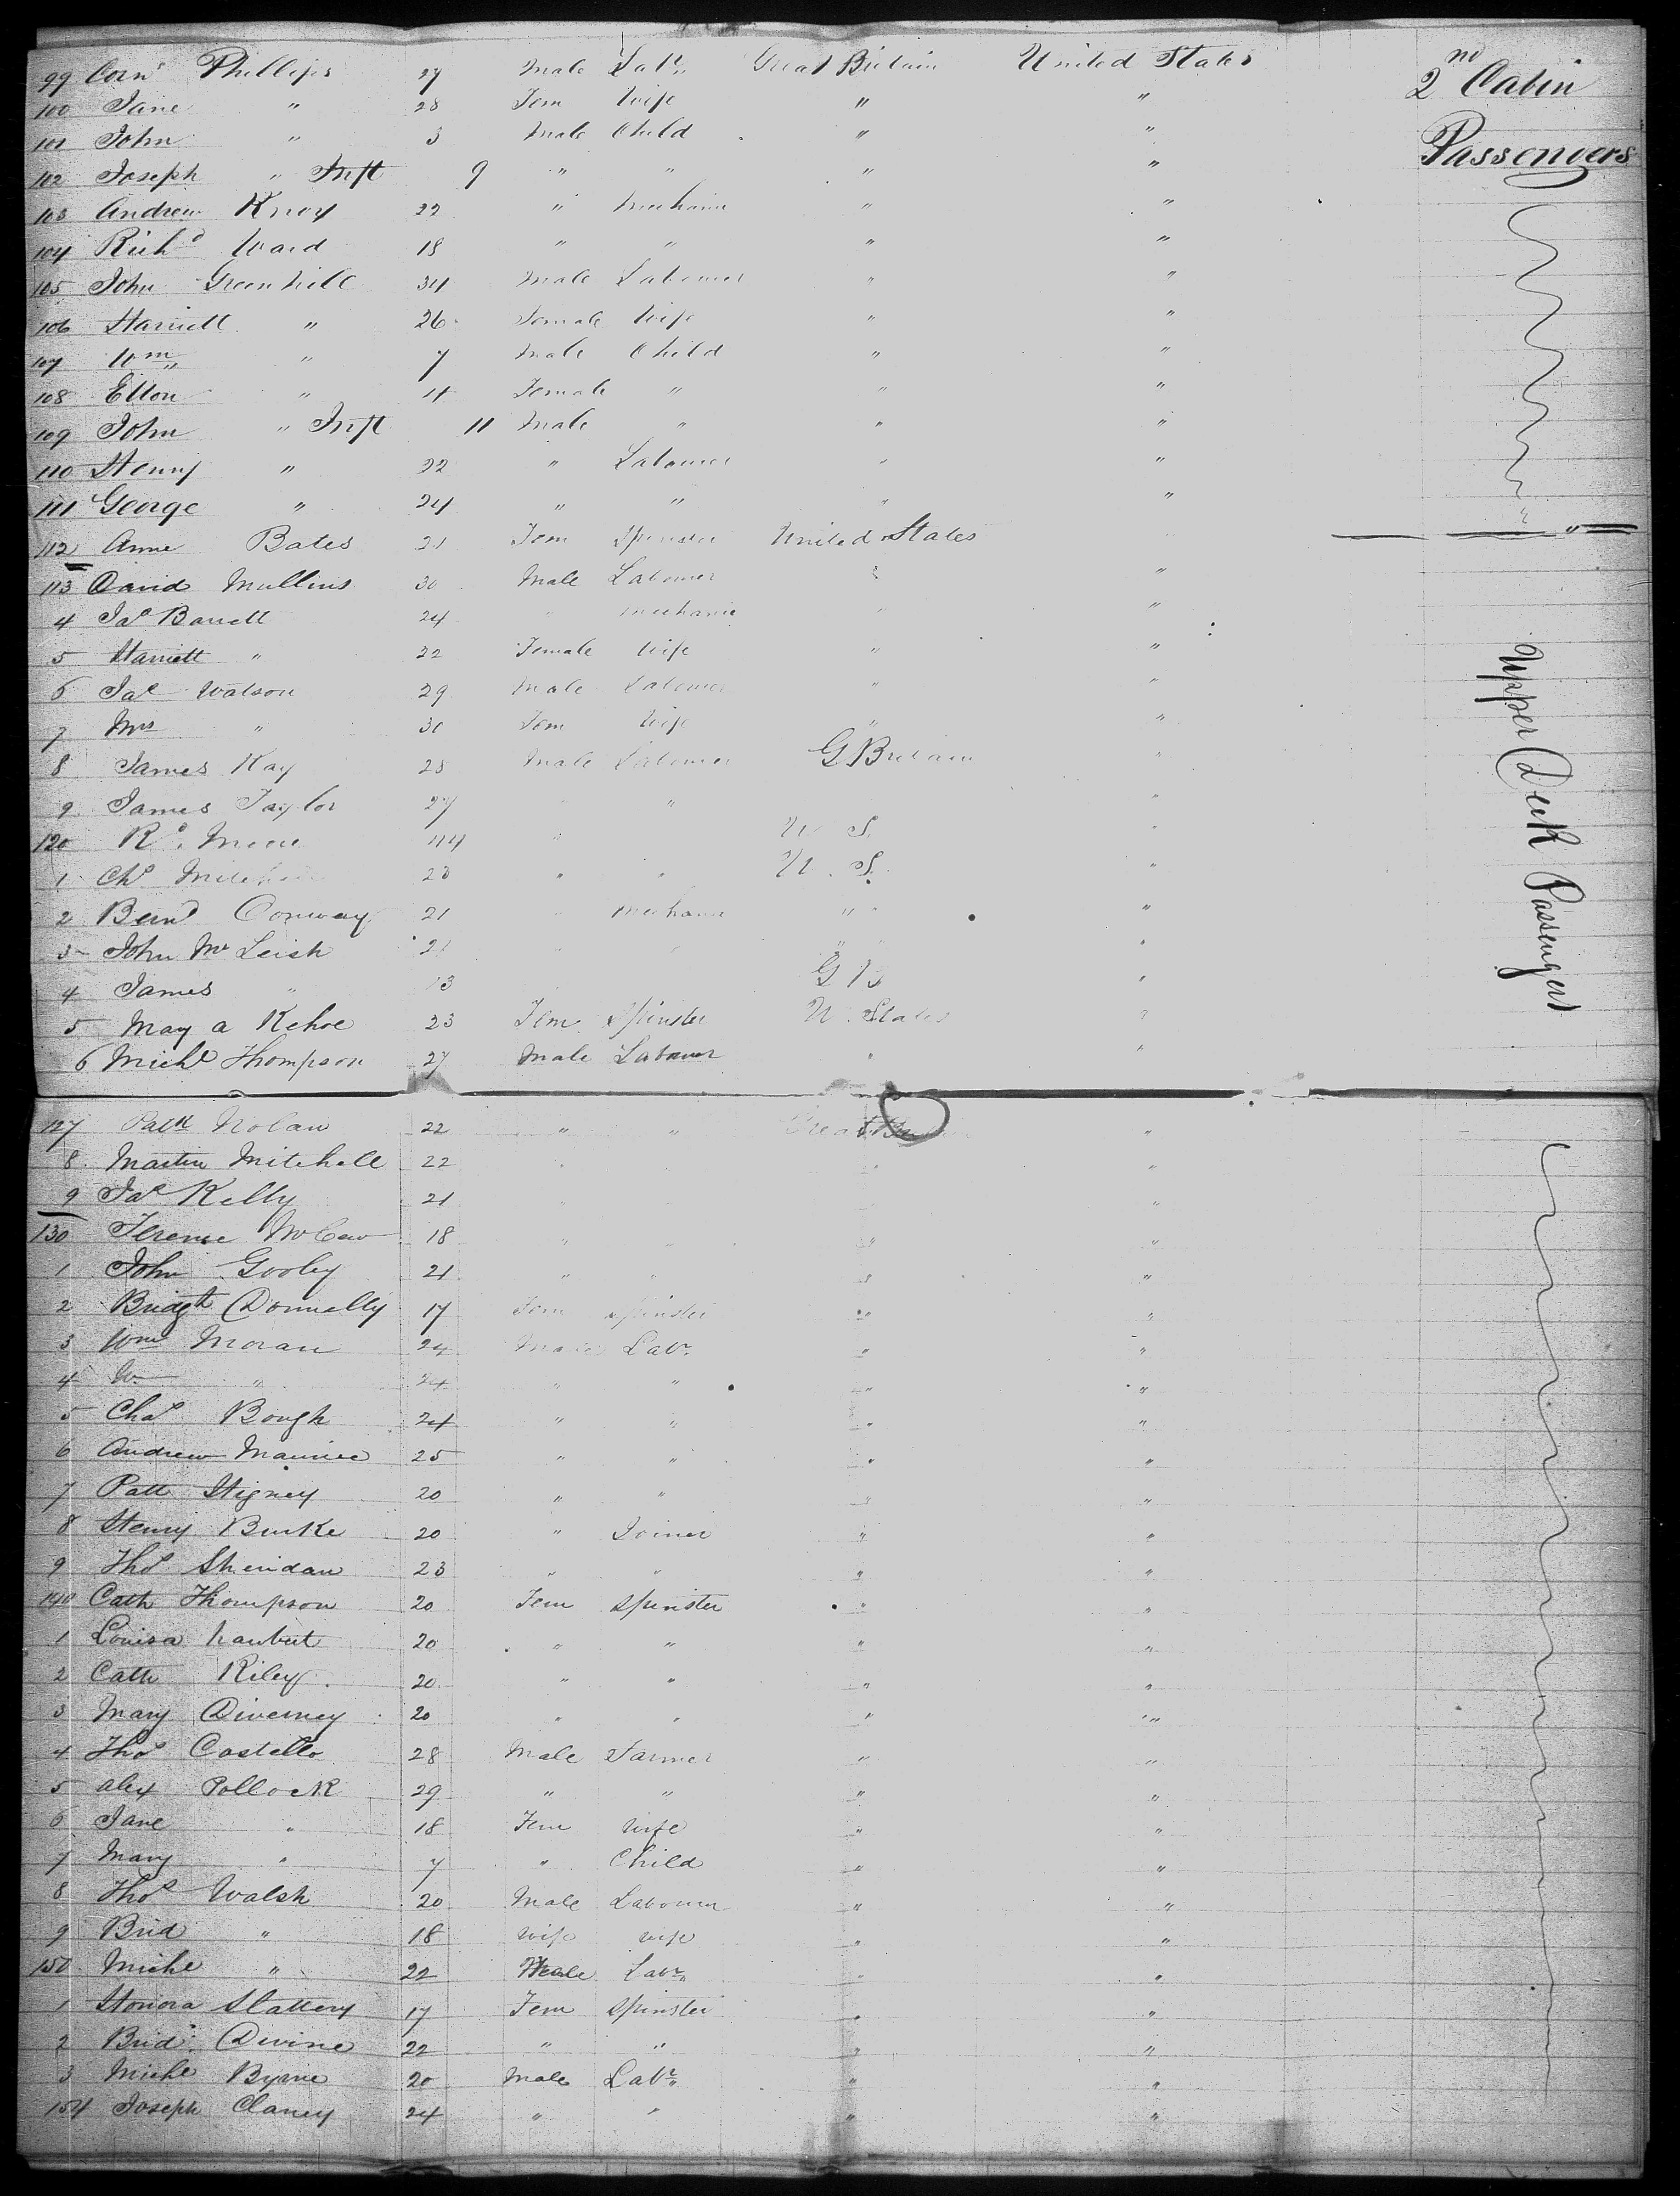 99 Corns Phillips 27 Male Labr Great Britain United States 2nd Cabin
100 Jane " 28 Fem Wife " "
101 John " 3 Male Child " " Passengers
102 Joseph " Inft 9 " " " "
103 Andrew Knox 22 " Mechanic " "
104 Richd Ward 18 " " " "
105 John Greenhill 34 Male Labourer " "
106 Harriett " 26 Female Wife " "
107 Wm " 7 Male Child " "
108 Ellon " 4 Female " " "
109 John " Inft 11 Male " " "
110 Henry " 22 " Labourer " "
111 George " 24 " " " "
112 Anne Bates 21 Fem Spinster United States
113 David Mullins 30 Male Labourer " "
4 Jas Barrett 24 " Mechanic " "
5 Harriett " 22 Female Wife " "
6 Jas Watson 29 Male Labourer " "
7 Mrs " 30 Fem Wife " "
8 James Kay 28 Male Labourer G Britain "
Upper Deck Passengers
9 James Taylor 27 " " "
120 Rd 44 " U S. "
1 Chs 28 " " U. S. "
2 Bernd Conway 21 " Mechanic " "
3 John Mc Leish 21 " "
4 James " 13 G B "
5 May a Kehoe 23 Fem Spinster U. States "
6 Michl Thompson 27 Male Labourer " "
127 Patk Nolan 22 " " Great "
8 Martin Mitchell 22 " " "
9 Jas Kelly 21 "
130 Terence McCaw 18 " " " "
1 John Gooley 21 " " " "
2 Bridgt Donnelly 17 Fem Spinster " "
3 Wm Moran 24 Male Labr. " "
4 W " 24 " " " "
5 Chas Bough 24 " " " "
6 Andrew 25 " " " "
7 Patt Stigney 20 " " " "
8 Henry Burke 20 " Joiner " "
9 Thos Sheridan 23 " " " "
140 Cath Thompson 20 Fem Spinster " "
1 Louisa 20 " " " "
2 Cath Riley. 20 " " " "
3 Mary Diverney 20 " " " "
4 Thos Costello 28 Male Farmer " "
5 Alex Pollock 29 " " " "
6 Jane " 18 Fem Wife " "
7 Mary " 7 " Child " "
8 Thos Walsh 20 Male Labourer " "
9 Brid " 18 Wife Wife " "
150 Michl " 22 Male Labr " "
1 Honora Slattery 17 Fem Spinster " "
2 Brid. Devine 22 " " " "
3 Michl Byrne 20 Male Labr " "
154 Joseph Clancy 24 " " " "